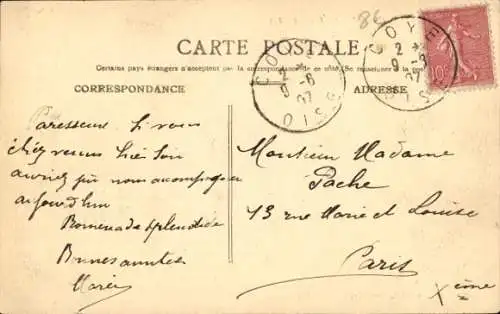 86
CARTE POSTALE
Certains pays étrangers n'acceptent pas la correspondance de ce côté (Se renseigner à la poste)
CORRESPONDANCE
ADRESSE
COYE
2 *
9 - 6
07
OISE
COYE
2 *
9 - 6
07
OISE
10c
Paresseux Si vous
étiez venus hier soir
auriez pu nous accompagner
aujourd'hui
Promenade splendide
Bonnes amitiés
Marie
Monsieur Madame
Pache
13 rue Marie et Louise
Paris
Xème